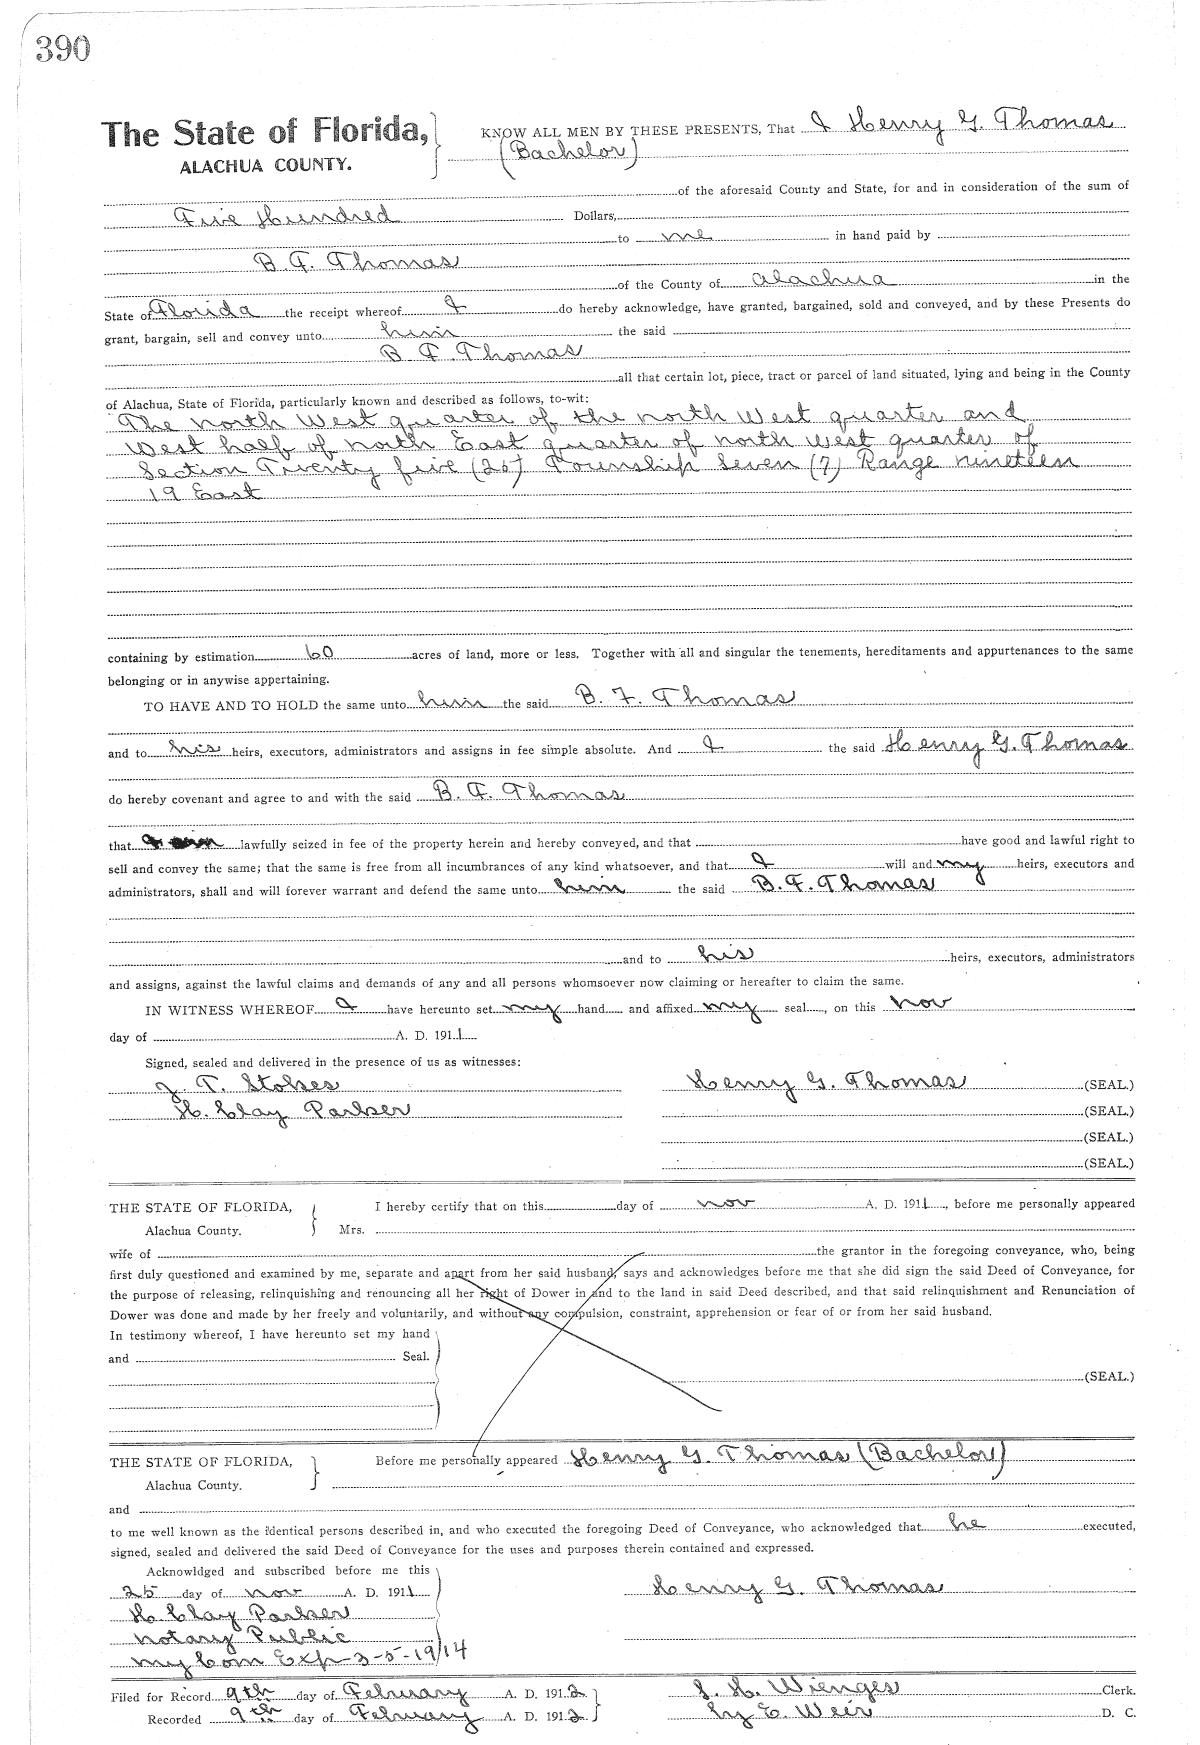 390
The State of Florida, KNOW ALL MEN BY THESE PRESENTS, That I Henry G. Thomas
ALACHUA COUNTY. (Bachelor)
of the aforesaid County and State, for and in consideration of the sum of
Five Hundred Dollars,
to me in hand paid by
B. F. Thomas
of the County of Alachua in the
State of Florida the receipt whereof I do hereby acknowledge, have granted, bargained, sold and conveyed, and by these Presents do
grant, bargain, sell and convey unto him the said
B F. Thomas
all that certain lot, piece, tract or parcel of land situated, lying and being in the County
of Alachua, State of Florida, particularly known and described as follows, to-wit:
The north West quarter of the north West quarter and
West half of north East quarter of north west quarter of
Section Twenty five (25) Township Seven (7) Range nineteen
19 East
containing by estimation 60 acres of land, more or less. Together with all and singular the tenements, hereditaments and appurtenances to the same
belonging or in anywise appertaining.
TO HAVE AND TO HOLD the same unto him the said B. F. Thomas
and to his heirs, executors, administrators and assigns in fee simple absolute. And I the said Henry G. Thomas
do hereby covenant and agree to and with the said B. F. Thomas
that I lawfully seized in fee of the property herein and hereby conveyed, and that have good and lawful right to
sell and convey the same; that the same is free from all incumbrances of any kind whatsoever, and that I will and my heirs, executors and
administrators, shall and will forever warrant and defend the same unto him the said B. F. Thomas
and to his heirs, executors, administrators
and assigns, against the lawful claims and demands of any and all persons whomsoever now claiming or hereafter to claim the same.
IN WITNESS WHEREOF I have hereunto set my hand and affixed my seal, on this Nov
day of A. D. 1911
Signed, sealed and delivered in the presence of us as witnesses:
J. T. Stokes Henry G. Thomas (SEAL.)
H. Clay Parker (SEAL.)
(SEAL.)
(SEAL.)
THE STATE OF FLORIDA, I hereby certify that on this day of Nov A. D. 1911, before me personally appeared
Alachua County. Mrs.
wife of the grantor in the foregoing conveyance, who, being
first duly questioned and examined by me, separate and apart from her said husband, says and acknowledges before me that she did sign the said Deed of Conveyance, for
the purpose of releasing, relinquishing and renouncing all her right of Dower in and to the land in said Deed described, and that said relinquishment and Renunciation of
Dower was done and made by her freely and voluntarily, and without any compulsion, constraint, apprehension or fear of or from her said husband.
In testimony whereof, I have hereunto set my hand
and Seal.
(SEAL.)
THE STATE OF FLORIDA, Before me personally appeared Henry G. Thomas (Bachelor)
Alachua County.
and
to me well known as the identical persons described in, and who executed the foregoing Deed of Conveyance, who acknowledged that he executed,
signed, sealed and delivered the said Deed of Conveyance for the uses and purposes therein contained and expressed.
Acknowldged and subscribed before me this
25 day of Nov A. D. 1911 Henry G. Thomas
H. Clay Parker
Notary Public
my Com Exp-3-5-19/14
Filed for Record 9th day of February A. D. 1912 S. H. Wienges Clerk.
Recorded 9th day of February A. D. 1912 by E. Weir D. C.